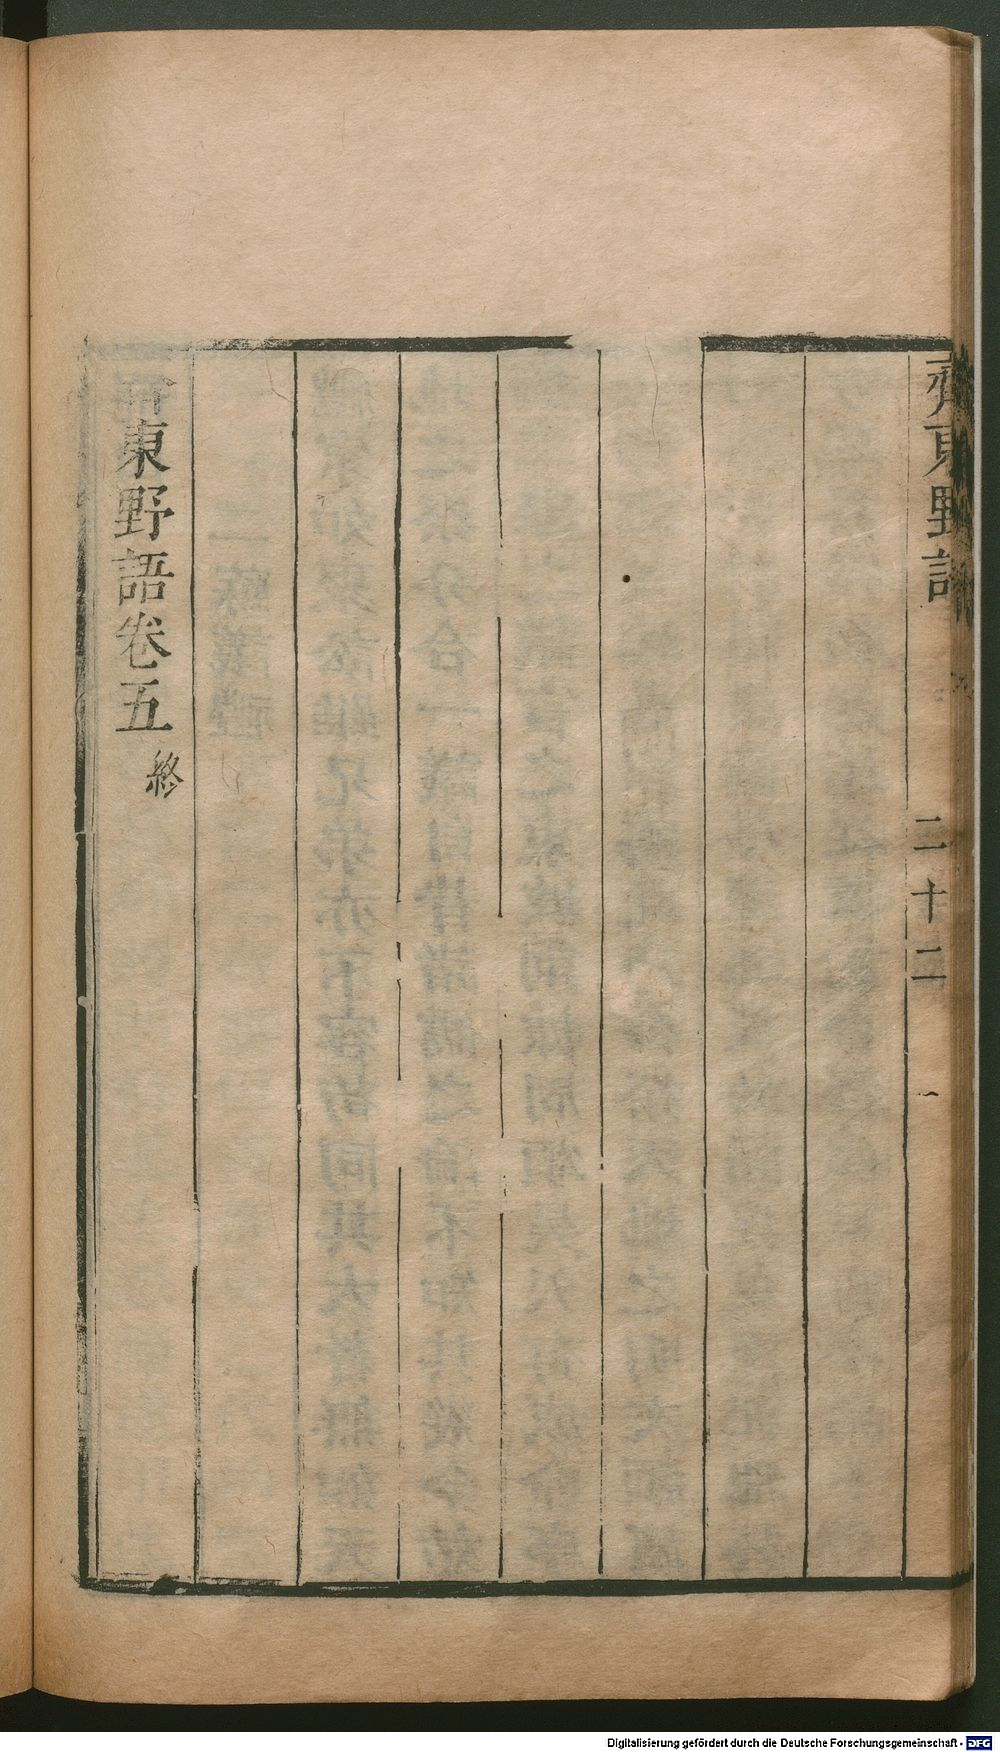 齊東野語
二十二
齊東野語卷五
終
Digitalisierung gefördert durch die Deutsche Forschungsgemeinschaft - DFG